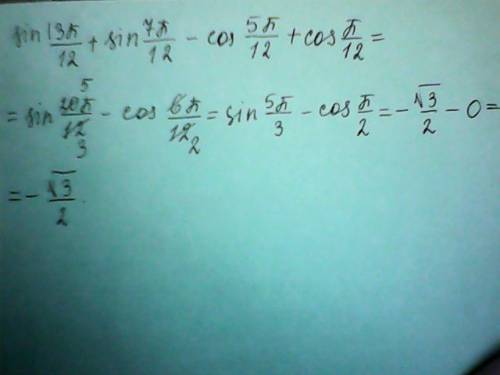 sin 13π/12 + sin 7π/12 - cos 5π/12 + cos π/12 =
= sin 20π/12 - cos 6π/12 = sin 5π/3 - cos π/2 = -√3/2 - 0 =
= -√3/2.